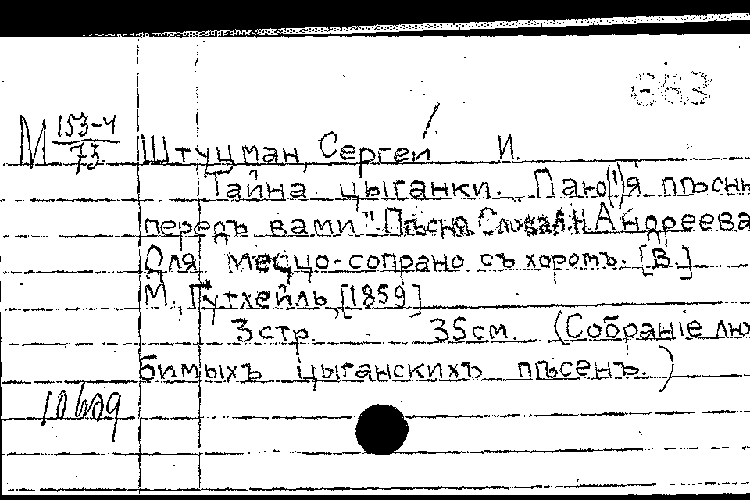 663
М 153-4/73 Штуцман, Сергей И.
Тайна цыганки. "Паю(!)я пѣснь
передъ вами". Пѣсня. Слова А.Н. Андреева
Для меццо-сопрано съ хоромъ. [В.]
М., Гутхейль, [1859]
3 стр. 35 см. (Собранiе лю-
бимыхъ цыганскихъ пѣсенъ.)
10609